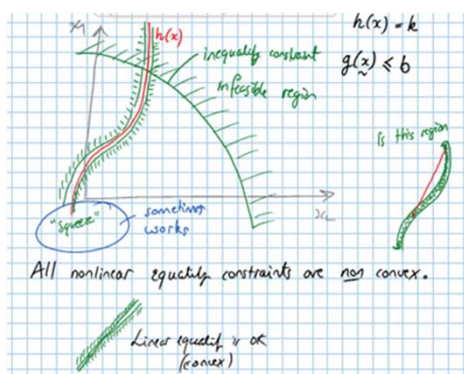 h(x) = k
h(x)
inequality constraint
g(x) ≤ b
infeasible region
Is this region
"squeeze"
sometimes
works
All nonlinear equality constraints are non convex.
Linear equality is ok
(convex)